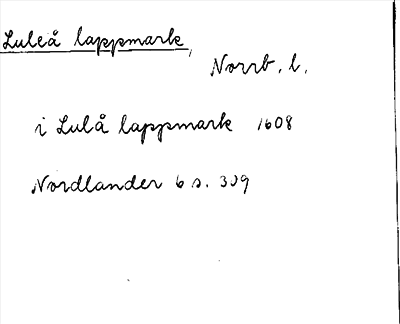 Luleå lappmark,
Norrb. l.
i Lulå lappmark 1608
Nordlander 6 s. 309